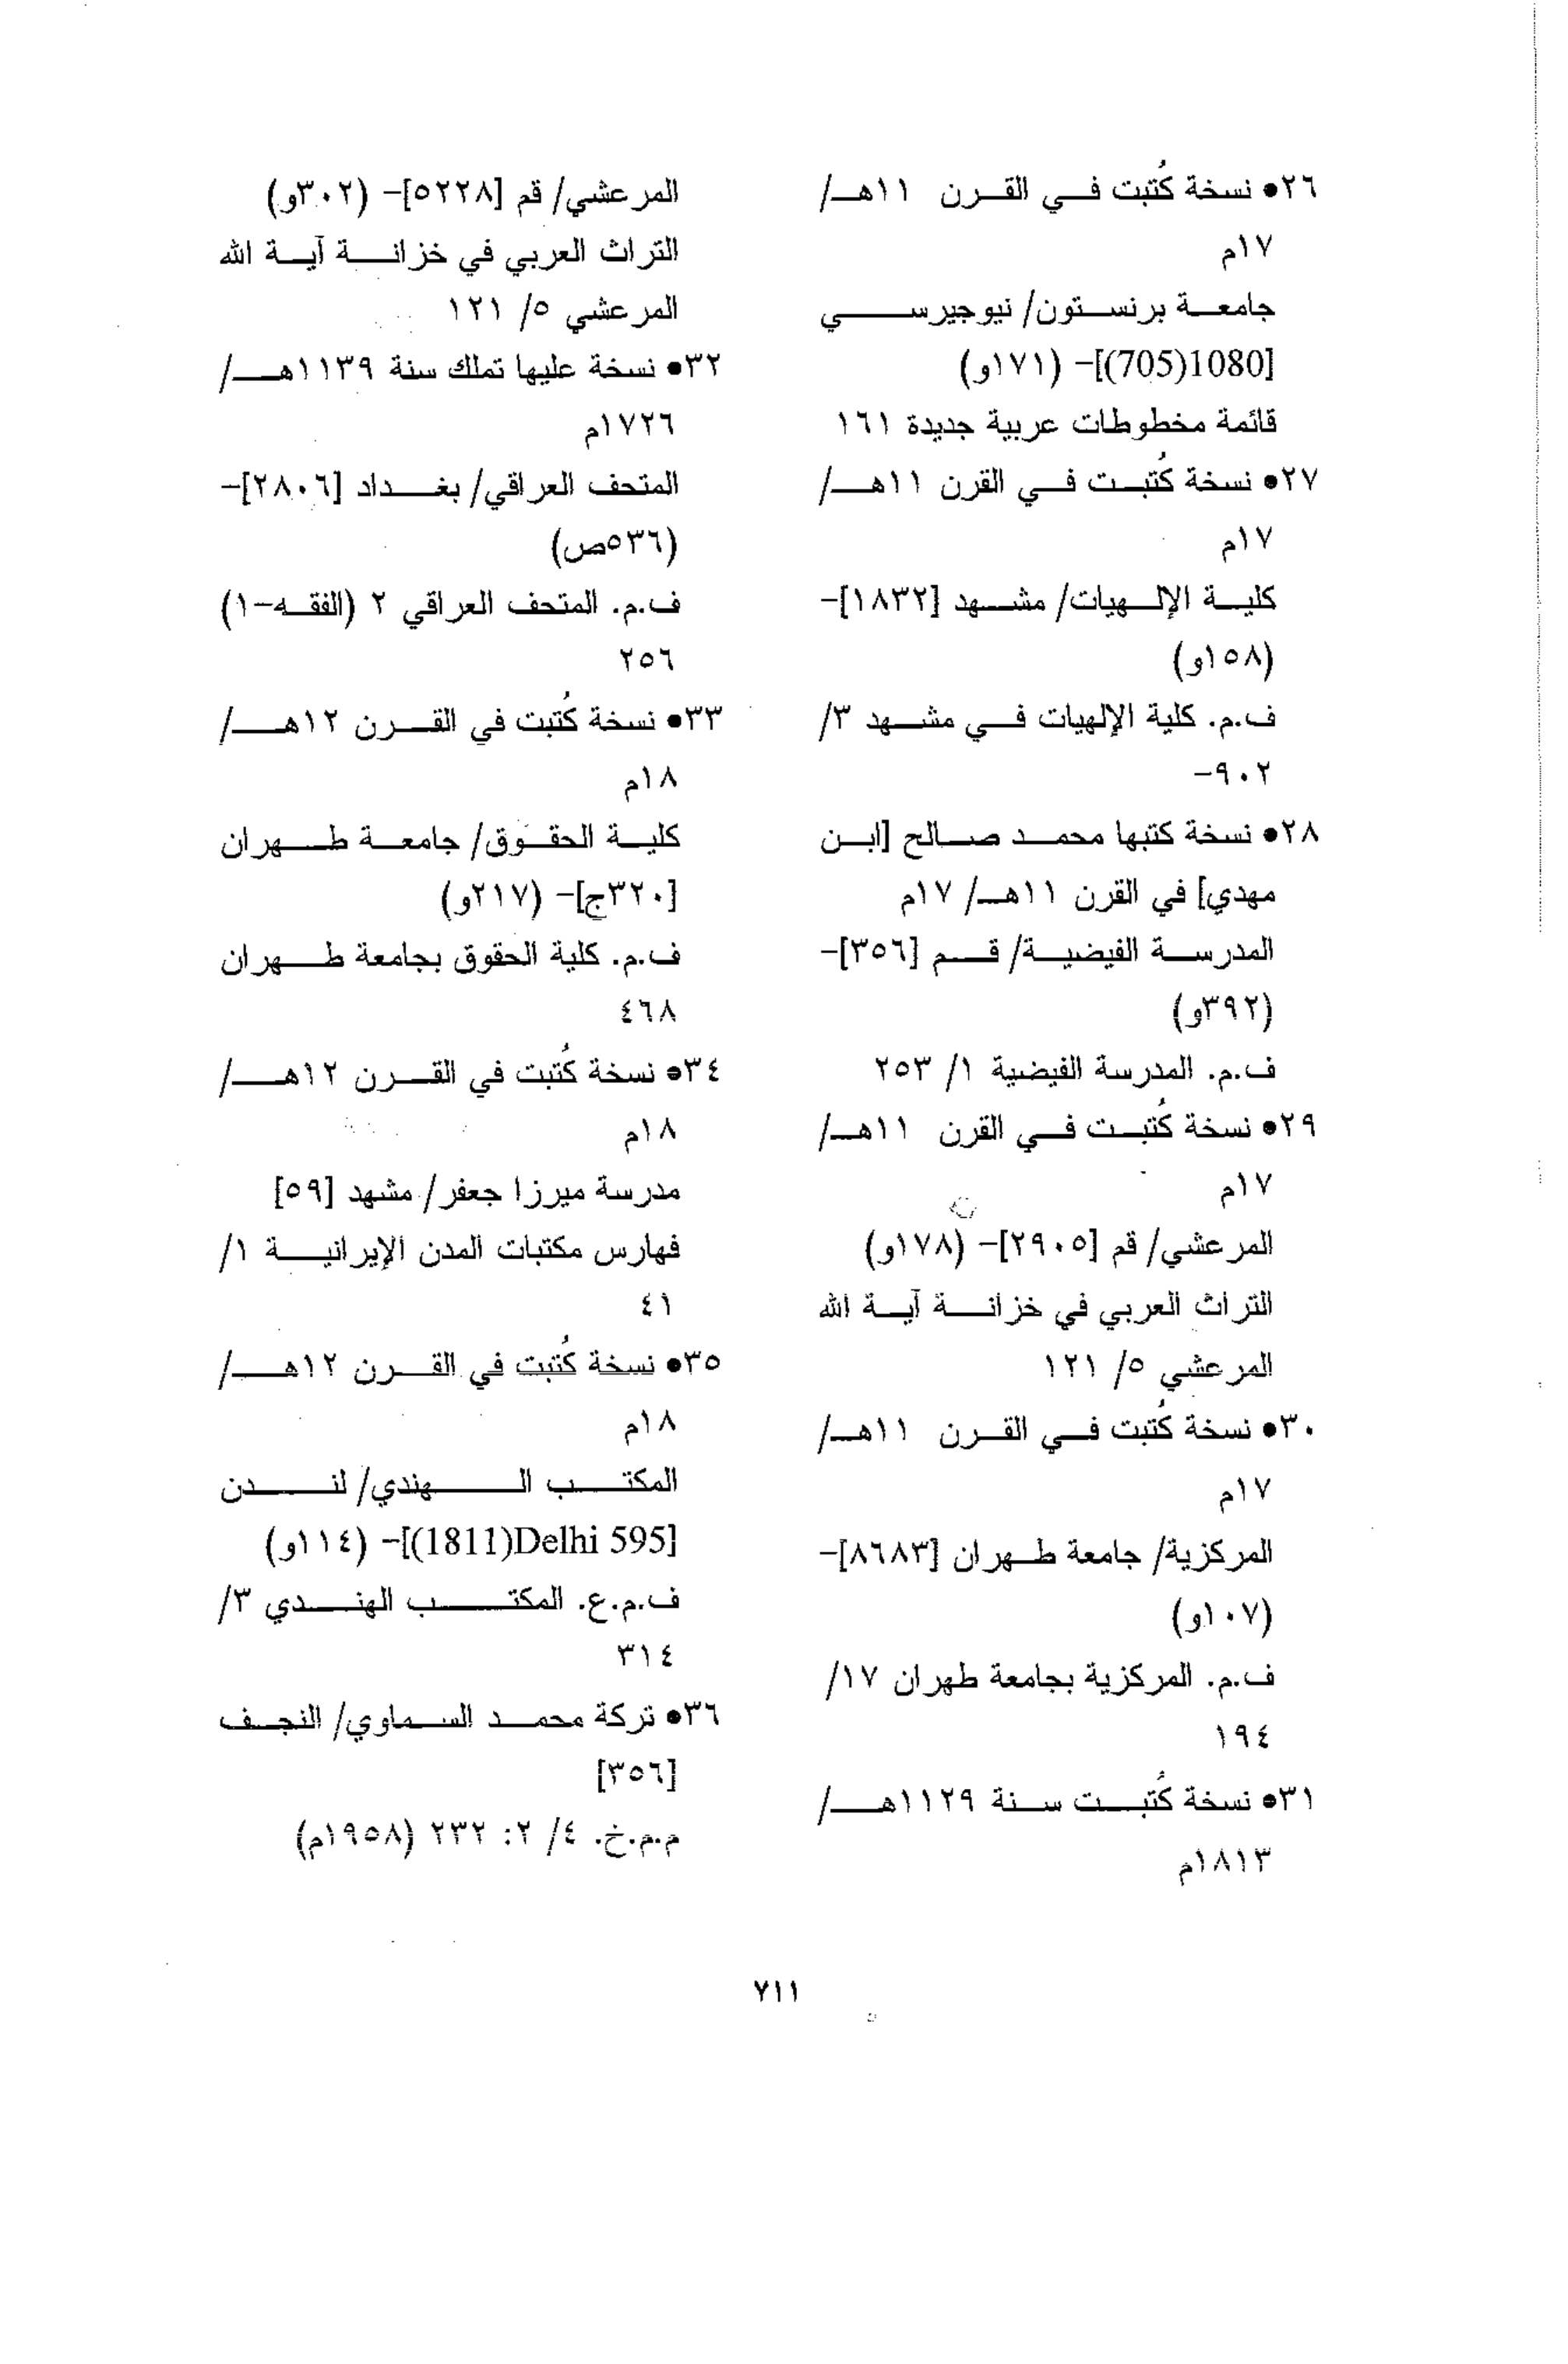 ٢٦• نسخة كُتبت في القرن ١١هـ/
١٧م
جامعة برنستون/ نيوجيرسي
[1080(705)]- (١٧١و)
قائمة مخطوطات عربية جديدة ١٦١
٢٧• نسخة كُتبت في القرن ١١هـ/
١٧م
كلية الإلهيات/ مشهد [١٨٣٢]-
(١٥٨و)
ف.م. كلية الإلهيات في مشهد ٣/
٩٠٢-
٢٨• نسخة كتبها محمد صالح [ابن
مهدي] في القرن ١١هـ/ ١٧م
المدرسة الفيضية/ قم [٣٥٦]-
(٣٩٢و)
ف.م. المدرسة الفيضية ١/ ٢٥٣
٢٩• نسخة كُتبت في القرن ١١هـ/
١٧م
المرعشي/ قم [٢٩٠٥]- (١٧٨و)
التراث العربي في خزانة آية الله
المرعشي ٥/ ١٢١
٣٠• نسخة كُتبت في القرن ١١هـ/
١٧م
المركزية/ جامعة طهران [٨٦٨٣]-
(١٠٧و)
ف.م. المركزية بجامعة طهران ١٧/
١٩٤
٣١• نسخة كُتبت سنة ١١٢٩هـ/
١٨١٣م
المرعشي/ قم [٥٢٢٨]- (٣٠٢و)
التراث العربي في خزانة آية الله
المرعشي ٥/ ١٢١
٣٢• نسخة عليها تملك سنة ١١٣٩هـ/
١٧٢٦م
المتحف العراقي/ بغداد [٢٨٠٦]-
(٥٣٦ص)
ف.م. المتحف العراقي ٢ (الفقه-١)
٢٥٦
٣٣• نسخة كُتبت في القرن ١٢هـ/
١٨م
كلية الحقوق/ جامعة طهران
[٣٢٠ج]- (٢١٧و)
ف.م. كلية الحقوق بجامعة طهران
٤٦٨
٣٤• نسخة كُتبت في القرن ١٢هـ/
١٨م
مدرسة ميرزا جعفر/ مشهد [٥٩]
فهارس مكتبات المدن الإيرانية ١/
٤١
٣٥• نسخة كُتبت في القرن ١٢هـ/
١٨م
المكتب الهندي/ لندن
[Delhi 595(1811)]- (١١٤و)
ف.م.ع. المكتب الهندي ٣/
٣١٤
٣٦• تركة محمد السماوي/ النجف
[٣٥٦]
م.م.خ. ٤/ ٢: ٢٣٢ (١٩٥٨م)
٧١١